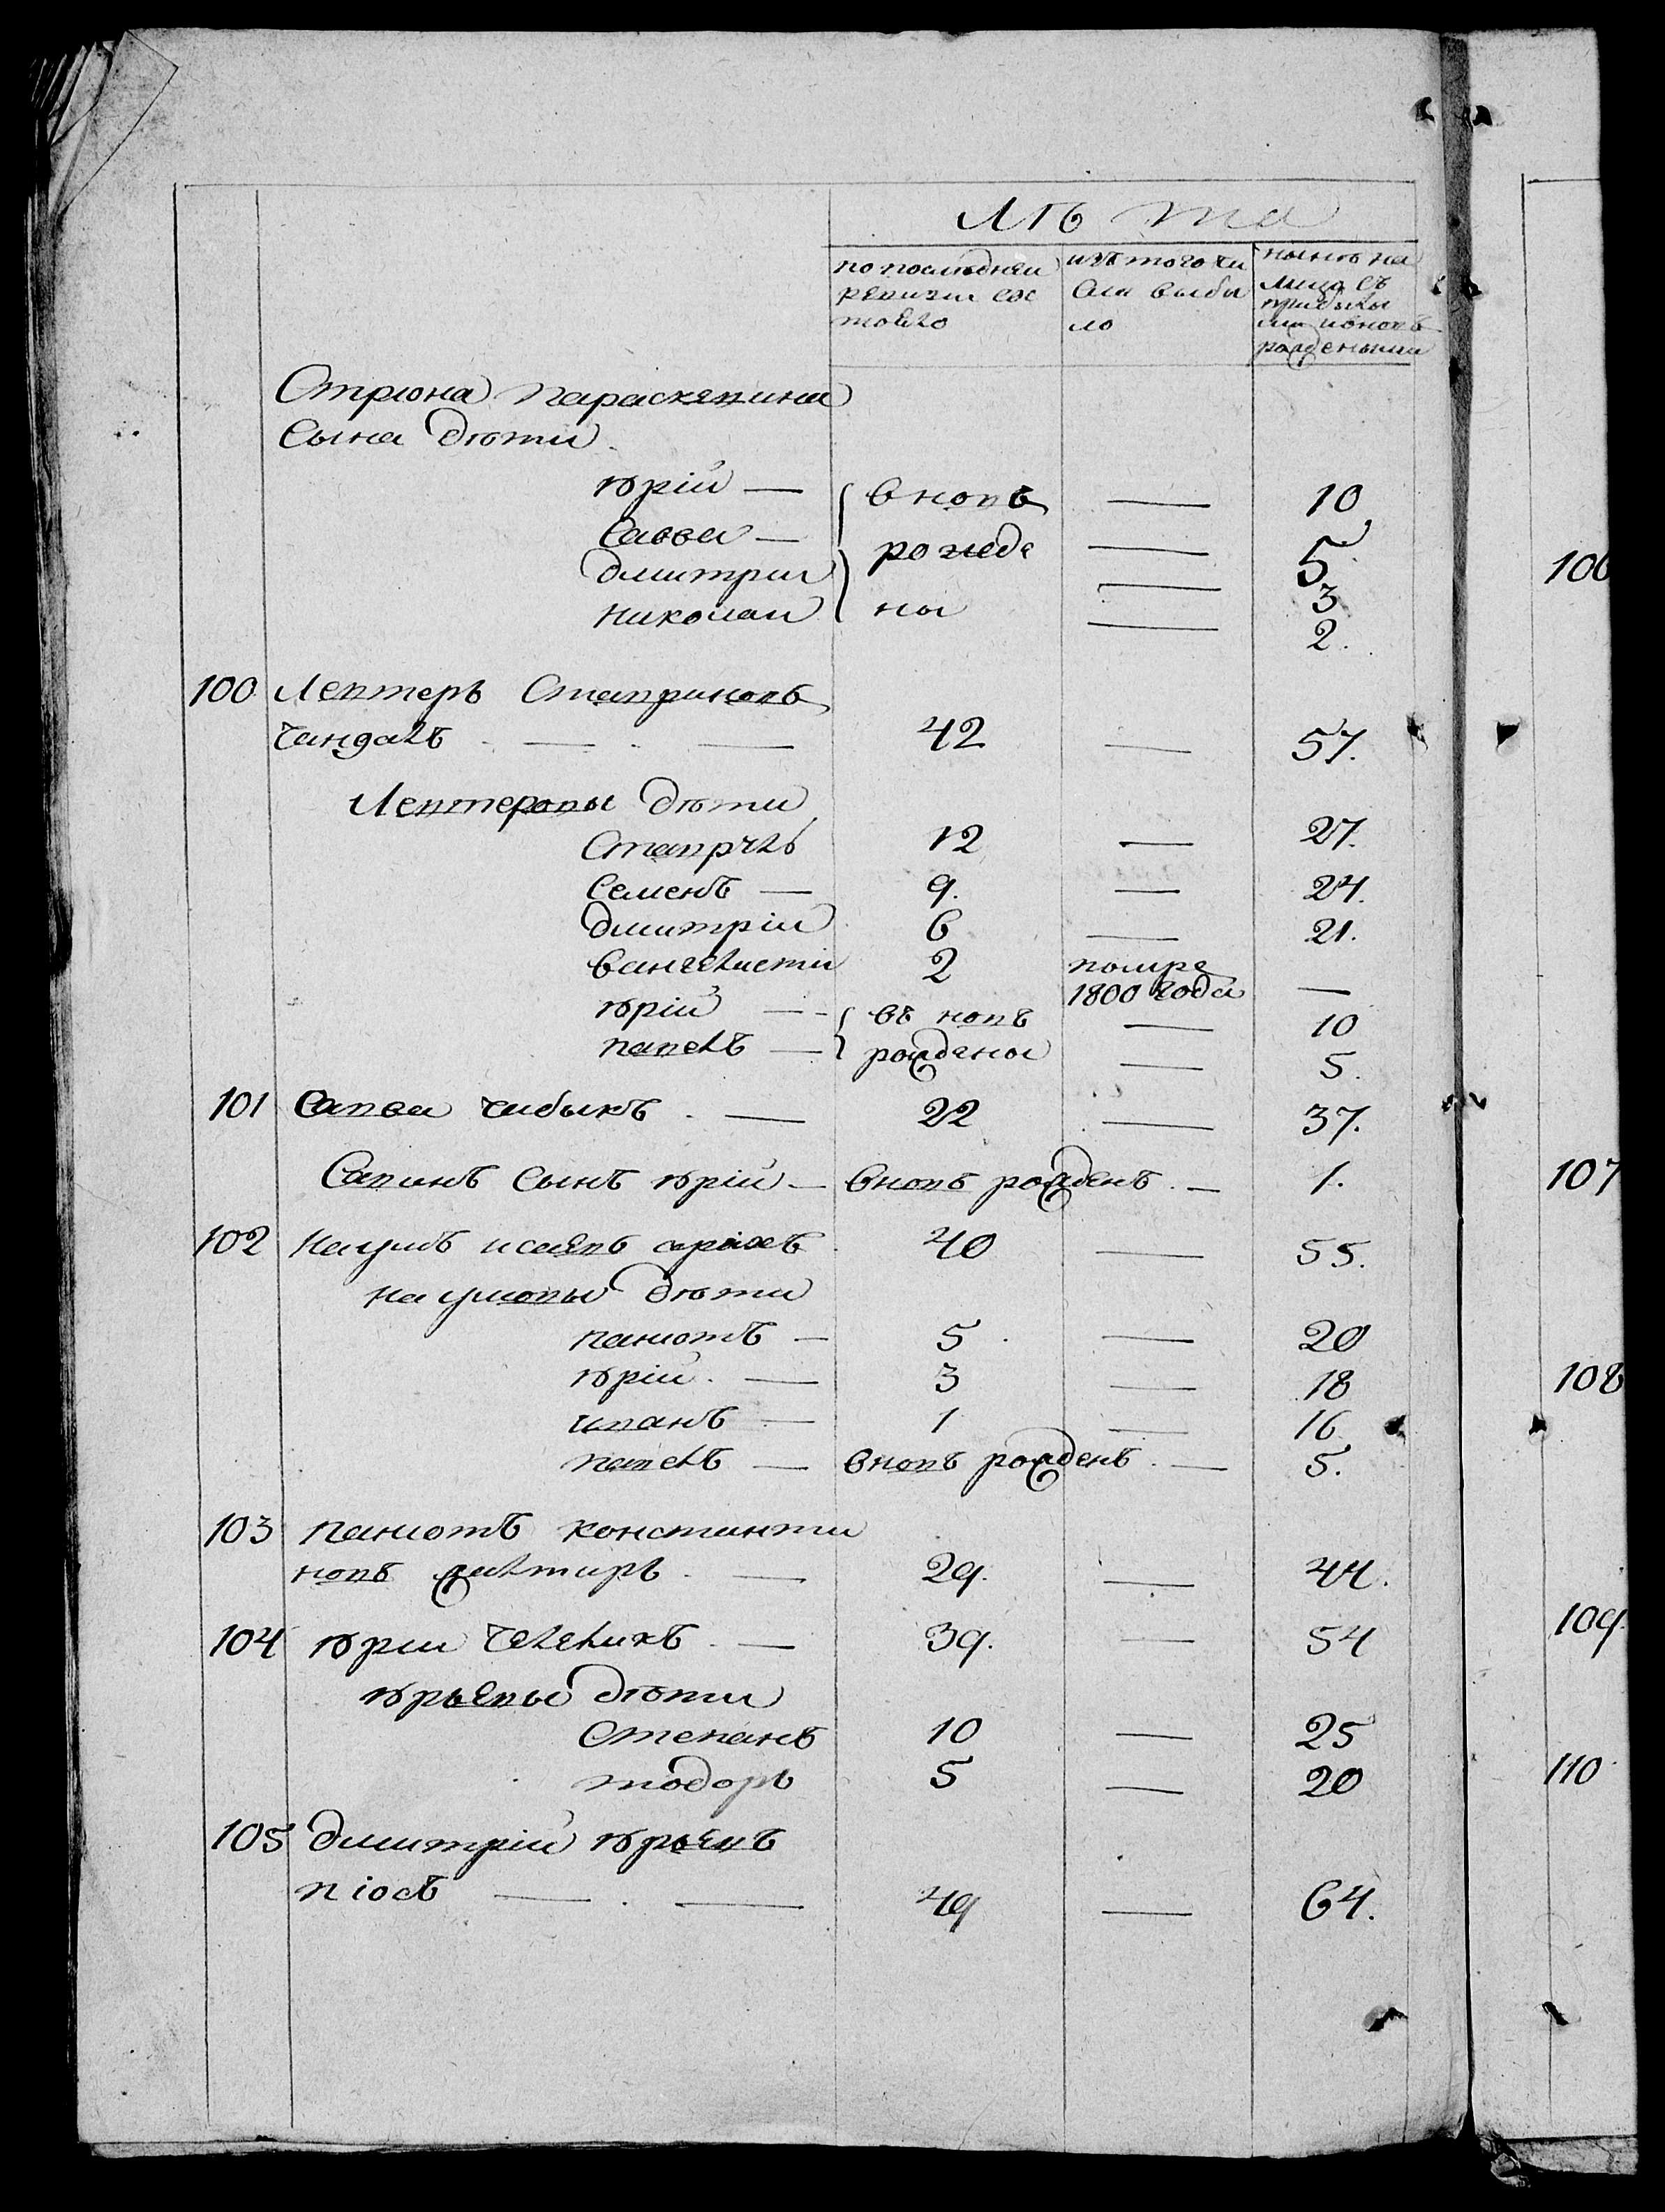 Лѣта
по последнеи ревизии состояло
изъ того числа выбыло
нынѣ на лицо съ прибылыми и вновь рожденными
Стріона Параскевина
Сына дѣти
юрій — вновь — 10
Савва — рожде — 5
Дмитрии — 3
николаи ны — 2.
100 Лефтеръ Ставриновъ
чандалъ — 42 — 57.
Лефтеровы дѣти
Ставрулъ 12 — 27.
Семенъ — 9. — 24.
Дмитріи 6 — 21.
вангелисти 2 помре 1800 года —
юрій — въ новъ — 10
павелъ — рождены — 5.
101 Савва чабыкъ — 22 — 37.
Савинъ Сынъ юрій — вновь рожденъ — 1.
102 Наумъ исаевъ 40 — 55.
наумовы дѣти
паниотъ — 5 — 20
юріи — 3 — 18
иванъ — 1 — 16
павелъ — вновь рожденъ — 5.
103 паниотъ константи
новъ 29. — 44.
104 юрии челеликъ — 39. — 54
юрьевы дѣти
Степанъ 10 — 25
тодоръ 5 — 20
105 Дмитріи юрьевъ
піосъ — 49 — 64.
106
107
108
109.
110